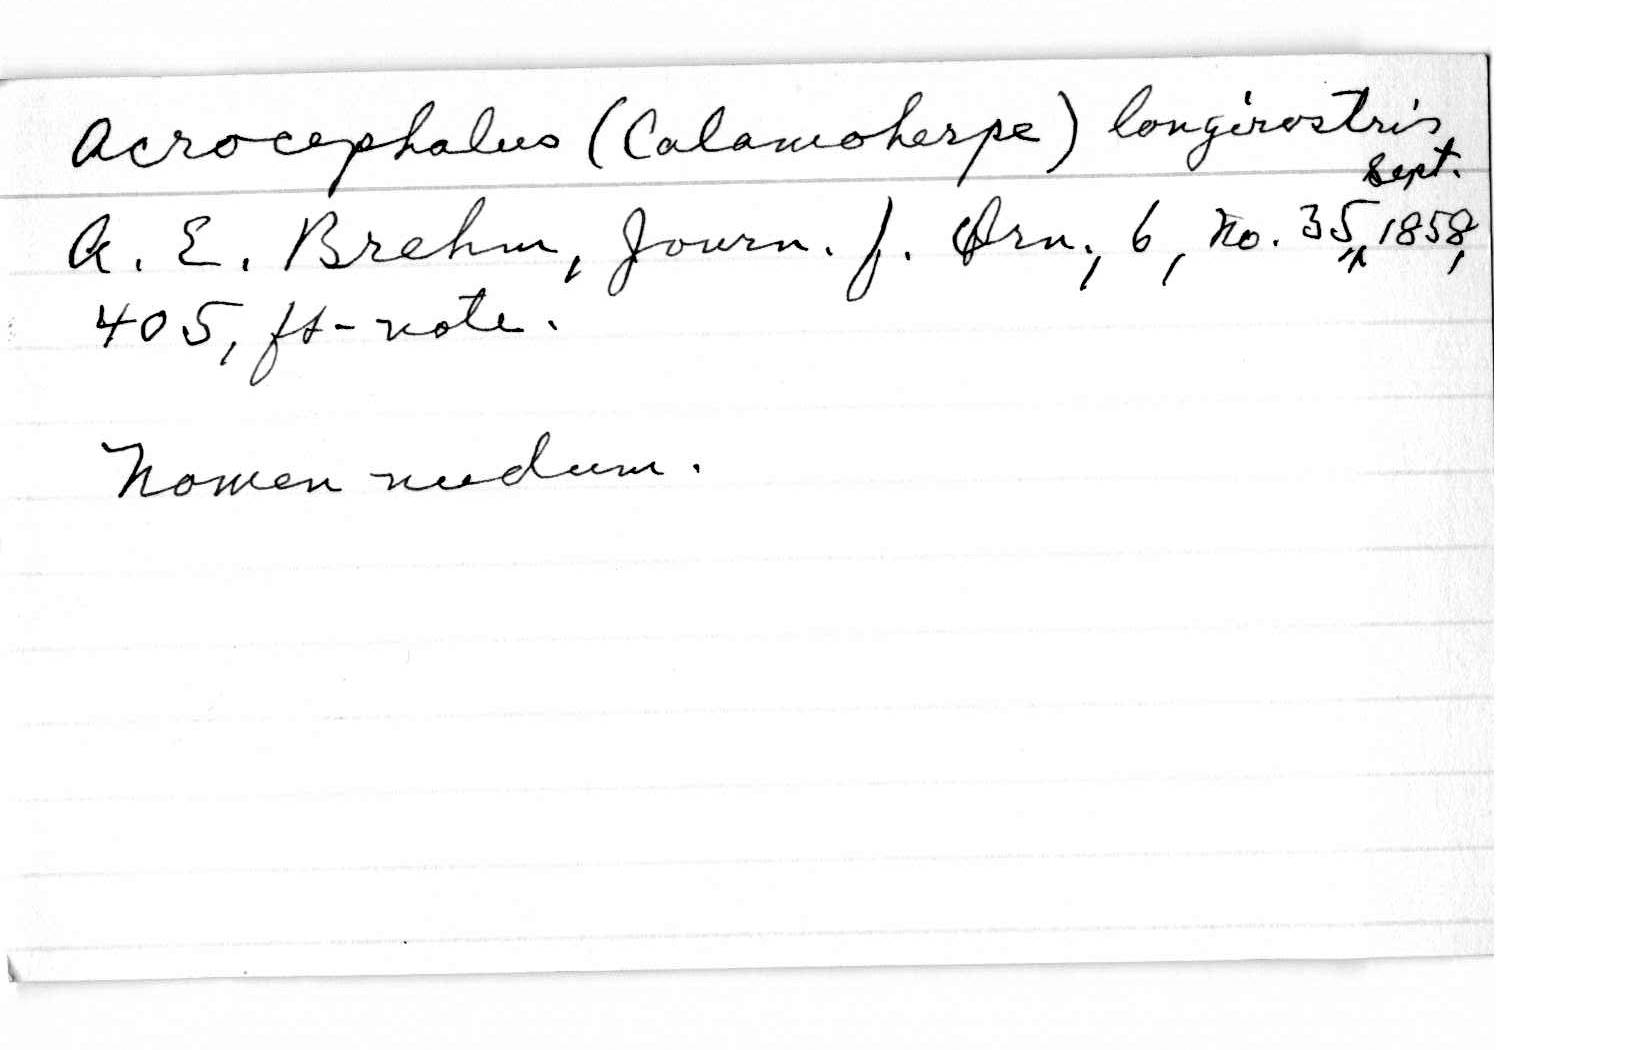 Acrocephalus (Calamoherpe) longirostris
A. E. Brehm, Journ. f. Orn., 6, no. 35, Sept. 1858,
405, ft-note.
Nomen nudum.